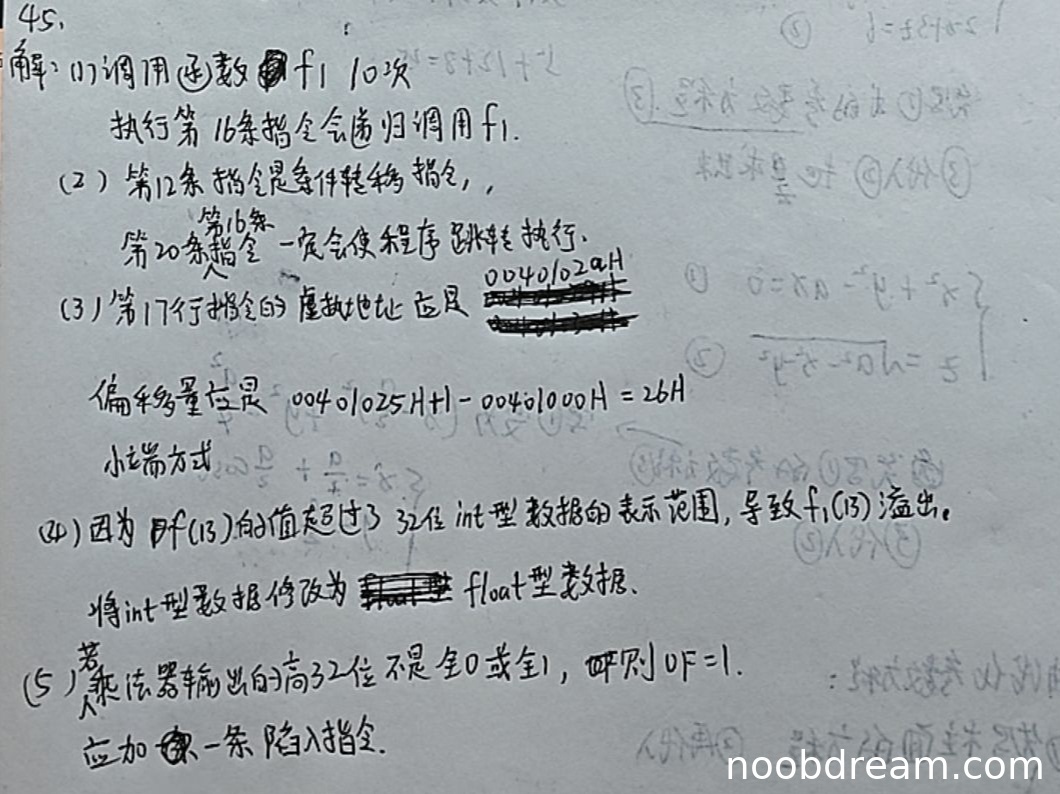 45.
解：(1) 调用函数 f1 10次
执行第16条指令会递归调用f1.
(2) 第12条指令是条件转移指令，，
第16条
第20条指令一定会使程序跳转执行.
0040102aH
(3) 第17行指令的虚拟地址应是
偏移量应是 00401025H+1-00401000H=26H
小端方式
(4) 因为f(13)的值超过了32位int型数据的表示范围，导致f1(13)溢出。
将int型数据修改为 float型数据.
(5) 若乘法器输出的高32位不是全0或全1，则OF=1.
应加一条陷入指令.
noobdream.com